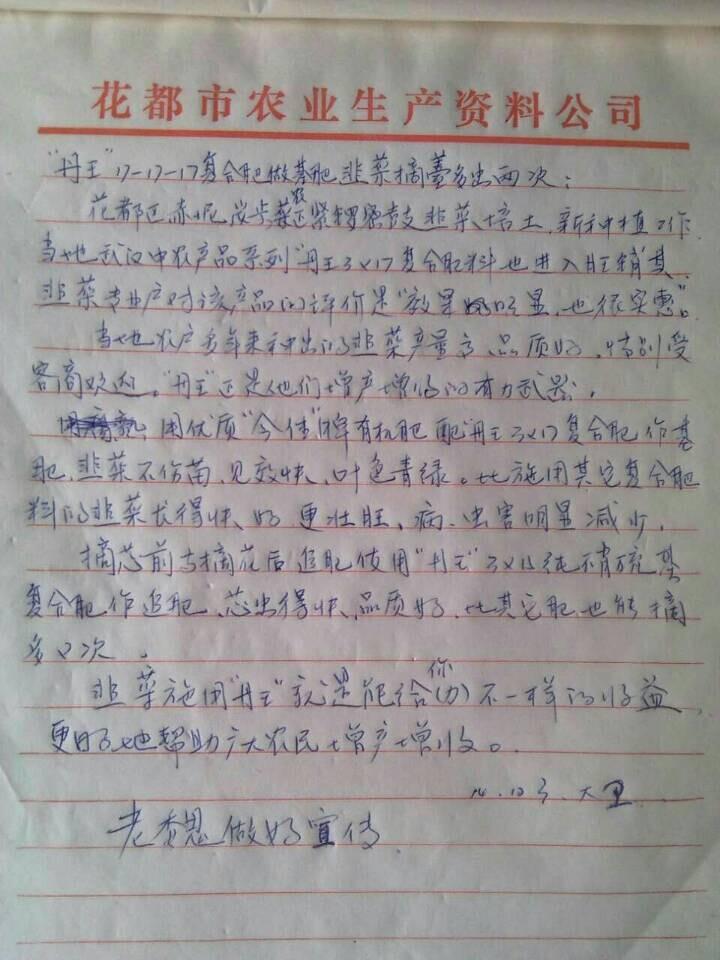 花都市农业生产资料公司
"丹王"17-17-17复合肥做基肥韭菜摘薹多出两次:
花都区赤坭 菜农正紧锣密鼓韭菜培土,新种植工作
当地武汉中农产品系列"丹王3×17复合肥料也进入旺销其
韭菜专业户对该产品的评价是"效果好明显,也很实惠"。
当地农户多年来种出的韭菜产量高、品质好,特别受
客商欢迎。"丹王"正是他们增产增收的有力武器,
用优质"今佳"牌有机肥配"丹王3×17复合肥作基
肥,韭菜不伤苗、见效快、叶色青绿。比施用其它复合肥
料的韭菜长得快、好更壮旺、病、虫害明显减少,
摘芯前与摘花后追肥使用"丹王"3×15纯硝硫基
复合肥作追肥、芯出得快、品质好,比其它肥也能摘
多2次。
韭菜施用"丹王"就是能给你(力)不一样的收益,
更好地帮助广大农民增产增收。
14.12.3.大卫
老魏做好宣传